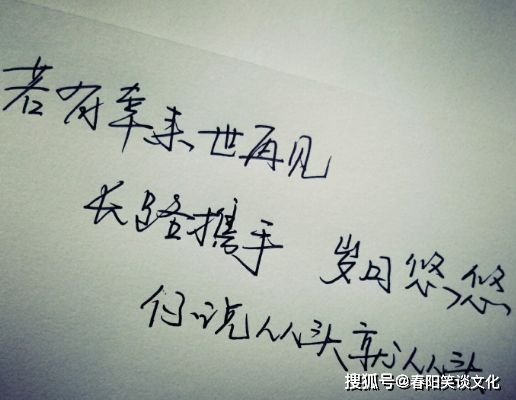 若有幸来世再见
长路携手 岁月悠悠
说从头就从头
搜狐号@春阳笑谈文化